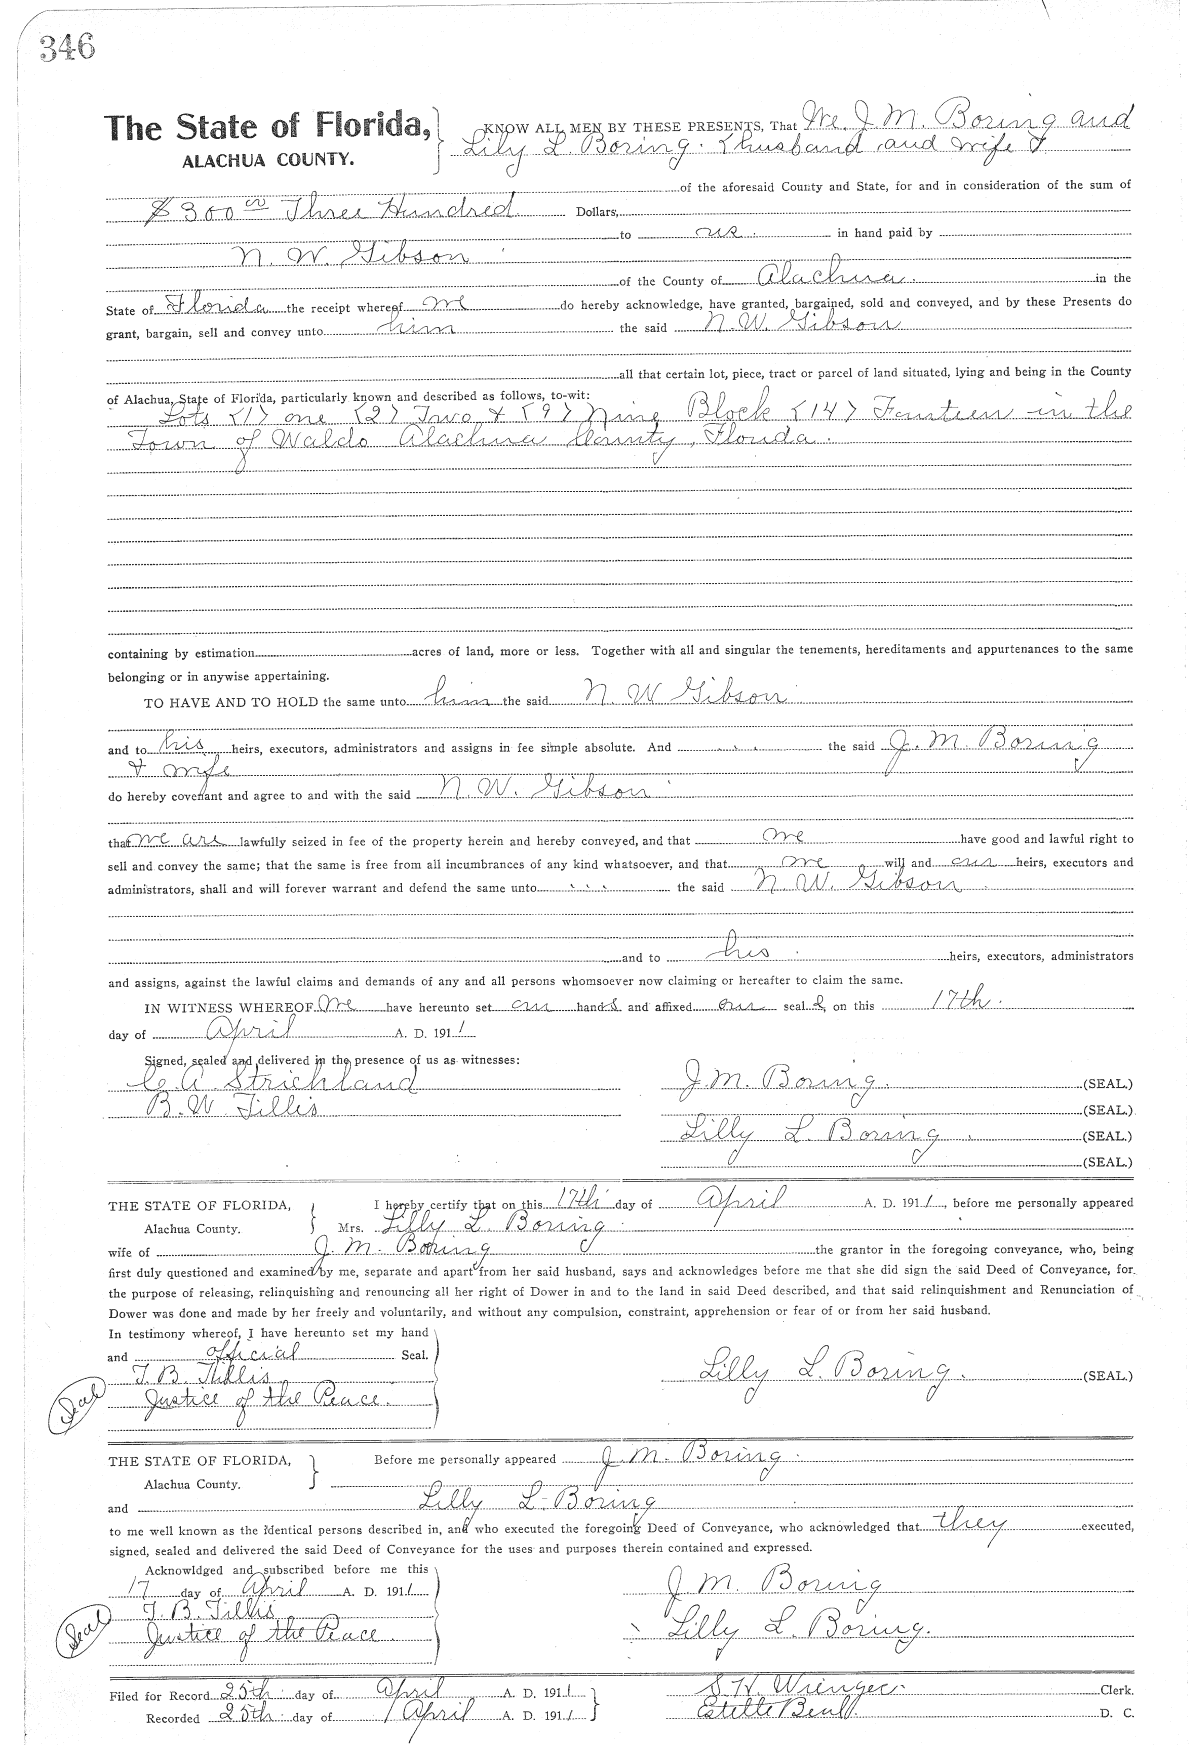 346
The State of Florida, KNOW ALL MEN BY THESE PRESENTS, That We, J. M. Boring and
ALACHUA COUNTY. Lily L. Boring. (husband and wife)
of the aforesaid County and State, for and in consideration of the sum of
$300 00 Three Hundred Dollars,
to us in hand paid by
N. W. Gibson
of the County of Alachua. in the
State of Florida the receipt whereof we do hereby acknowledge, have granted, bargained, sold and conveyed, and by these Presents do
grant, bargain, sell and convey unto him the said N. W. Gibson
all that certain lot, piece, tract or parcel of land situated, lying and being in the County
of Alachua, State of Florida, particularly known and described as follows, to-wit:
Lots (1) one (2) Two & (9) Nine Block (14) Fourteen in the
Town of Waldo Alachua County, Florida.
containing by estimation acres of land, more or less. Together with all and singular the tenements, hereditaments and appurtenances to the same
belonging or in anywise appertaining.
TO HAVE AND TO HOLD the same unto him the said N. W Gibson
and to his heirs, executors, administrators and assigns in fee simple absolute. And the said J. M. Boring
& wife
do hereby covenant and agree to and with the said N. W. Gibson
that we are lawfully seized in fee of the property herein and hereby conveyed, and that we have good and lawful right to
sell and convey the same; that the same is free from all incumbrances of any kind whatsoever, and that we will and our heirs, executors and
administrators, shall and will forever warrant and defend the same unto the said N. W. Gibson
and to his heirs, executors, administrators
and assigns, against the lawful claims and demands of any and all persons whomsoever now claiming or hereafter to claim the same.
IN WITNESS WHEREOF We have hereunto set our hands and affixed our seals, on this 17th.
day of April A. D. 1911
Signed, sealed and delivered in the presence of us as witnesses:
C. A Strickland J. M. Boring. (SEAL.)
B. W Tillis (SEAL.)
Lilly L. Boring. (SEAL.)
(SEAL.)
THE STATE OF FLORIDA, I hereby certify that on this 17th day of April A. D. 1911, before me personally appeared
Alachua County. Mrs. Lilly L. Boring
wife of J. M. Boring the grantor in the foregoing conveyance, who, being
first duly questioned and examined by me, separate and apart from her said husband, says and acknowledges before me that she did sign the said Deed of Conveyance, for
the purpose of releasing, relinquishing and renouncing all her right of Dower in and to the land in said Deed described, and that said relinquishment and Renunciation of
Dower was done and made by her freely and voluntarily, and without any compulsion, constraint, apprehension or fear of or from her said husband.
In testimony whereof, I have hereunto set my hand
and official Seal.
T. B. Tillis Lilly L. Boring. (SEAL.)
Seal Justice of the Peace.
THE STATE OF FLORIDA, Before me personally appeared J. M. Boring
Alachua County.
and Lilly L. Boring
to me well known as the identical persons described in, and who executed the foregoing Deed of Conveyance, who acknowledged that they executed,
signed, sealed and delivered the said Deed of Conveyance for the uses and purposes therein contained and expressed.
Acknowldged and subscribed before me this
17 day of April A. D. 1911 J. M. Boring
T. B. Tillis
Seal Justice of the Peace. Lilly L. Boring.
Filed for Record 25th day of April A. D. 1911 S. H. Wienges. Clerk.
Recorded 25th day of April A. D. 1911 Estelle Beall. D. C.